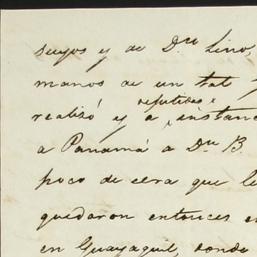 suyos y de Dn Lino,
manos de un tal
repetidas
realizó y a instanc
a Panamá a Dn B.
poco de cera que le
quedaron entonces en
en Guayaquil, donde